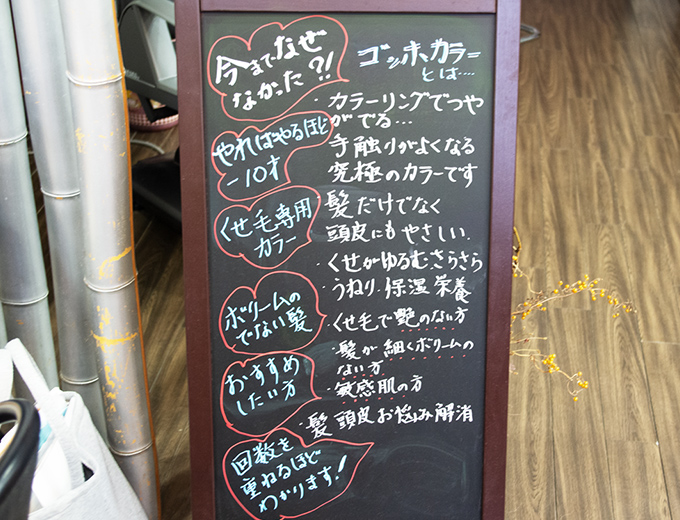 今までなぜ
なかった?!
やればやるほど
-10才
くせ毛専用
カラー
ボリームの
でない髪
おすすめ
したい方
回数を
重ねるほど
わかります!
ゴッホカラー
とは....
・カラーリングでつや
がでる...
手触りがよくなる
究極のカラーです
・髪だけでなく
頭皮にもやさしい.
・くせがゆるむさらさら
・うねり.保湿栄養
・くせ毛で艶のない方
・髪が細くボリームの
ない方
・敏感肌の方
・髪頭皮お悩み解消